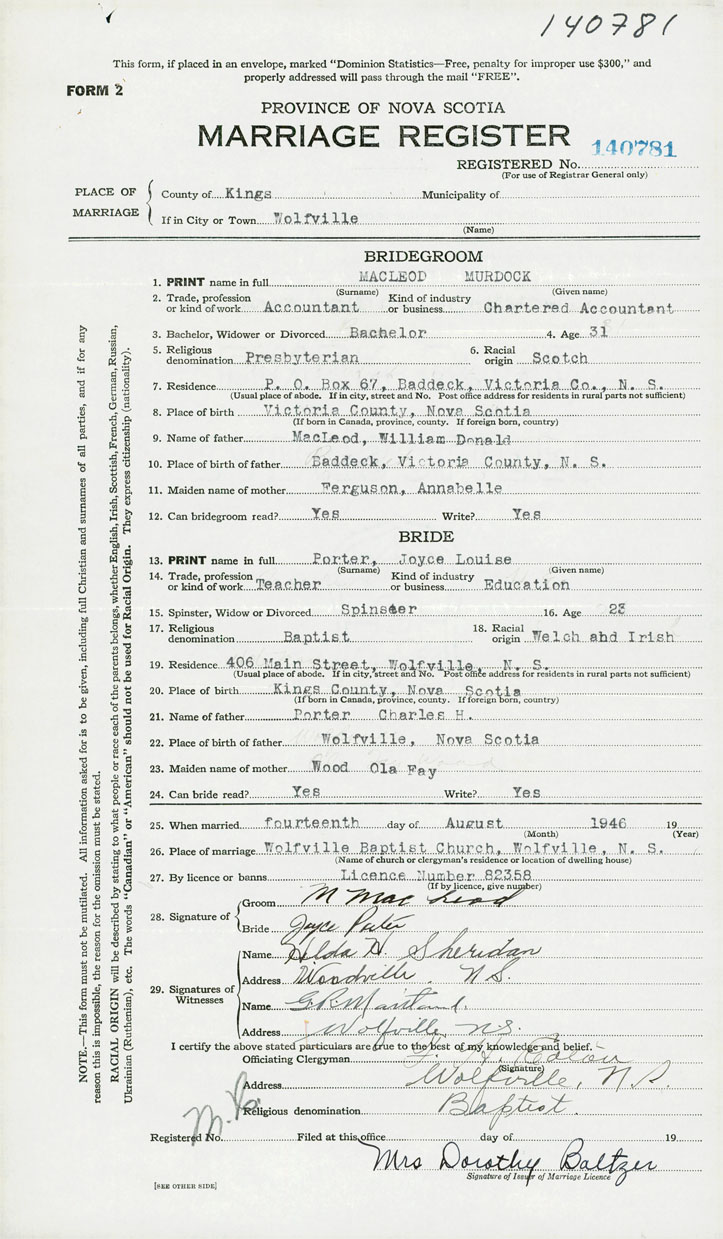 140781
This form, if placed in an envelope, marked "Dominion Statistics—Free, penalty for improper use $300," and
properly addressed will pass through the mail "FREE".
FORM 2
PROVINCE OF NOVA SCOTIA
MARRIAGE REGISTER
140781
REGISTERED No.
(For use of Registrar General only)
PLACE OF MARRIAGE
County of Kings Municipality of
If in City or Town Wolfville
(Name)
BRIDEGROOM
1. PRINT name in full MACLEOD MURDOCK
(Surname) (Given name)
2. Trade, profession or kind of work Accountant Kind of industry or business Chartered Accountant
3. Bachelor, Widower or Divorced Bachelor 4. Age 31
5. Religious denomination Presbyterian 6. Racial origin Scotch
7. Residence P. O. Box 67, Baddeck, Victoria Co., N. S.
(Usual place of abode. If in city, street and No. Post office address for residents in rural parts not sufficient)
8. Place of birth Victoria County, Nova Scotia
(If born in Canada, province, county. If foreign born, country)
9. Name of father MacLeod, William Donald
10. Place of birth of father Baddeck, Victoria County, N. S.
11. Maiden name of mother Ferguson, Annabelle
12. Can bridegroom read? Yes Write? Yes
BRIDE
13. PRINT name in full Porter, Joyce Louise
(Surname) (Given name)
14. Trade, profession or kind of work Teacher Kind of industry or business Education
15. Spinster, Widow or Divorced Spinster 16. Age 23
17. Religious denomination Baptist 18. Racial origin Welch ahd Irish
19. Residence 406 Main Street, Wolfville, N. S.
(Usual place of abode. If in city, street and No. Post office address for residents in rural parts not sufficient)
20. Place of birth Kings County, Nova Scotia
(If born in Canada, province, county. If foreign born, country)
21. Name of father Porter Charles H.
22. Place of birth of father Wolfville, Nova Scotia
23. Maiden name of mother Wood Ola Fay
24. Can bride read? Yes Write? Yes
25. When married fourteenth day of August 1946 19
(Month) (Year)
26. Place of marriage Wolfville Baptist Church, Wolfville, N. S.
(Name of church or clergyman's residence or location of dwelling house)
27. By licence or banns Licence Number 82358
(If by licence, give number)
28. Signature of
Groom M MacLeod
Bride Joyce Porter
29. Signatures of Witnesses
Name Hilda H. Sheridan
Address Woodville N.S.
Name G.R. Maitland.
Address Wolfville N.S.
I certify the above stated particulars are true to the best of my knowledge and belief.
Officiating Clergyman Eaton
(Signature)
Address Wolfville, N.S.
Religious denomination Baptist.
Registered No. Filed at this office day of 19
Mrs Dorothy Baltzer
Signature of Issuer of Marriage Licence
[SEE OTHER SIDE]
NOTE.—This form must not be mutilated. All information asked for is to be given, including full Christian and surnames of all parties, and if for any
reason this is impossible, the reason for the omission must be stated.
RACIAL ORIGIN will be described by stating to what people or race each of the parents belongs, whether English, Irish, Scottish, French, German, Russian,
Ukrainian (Ruthenian), etc. The words "Canadian" or "American" should not be used for Racial Origin. They express citizenship (nationality).